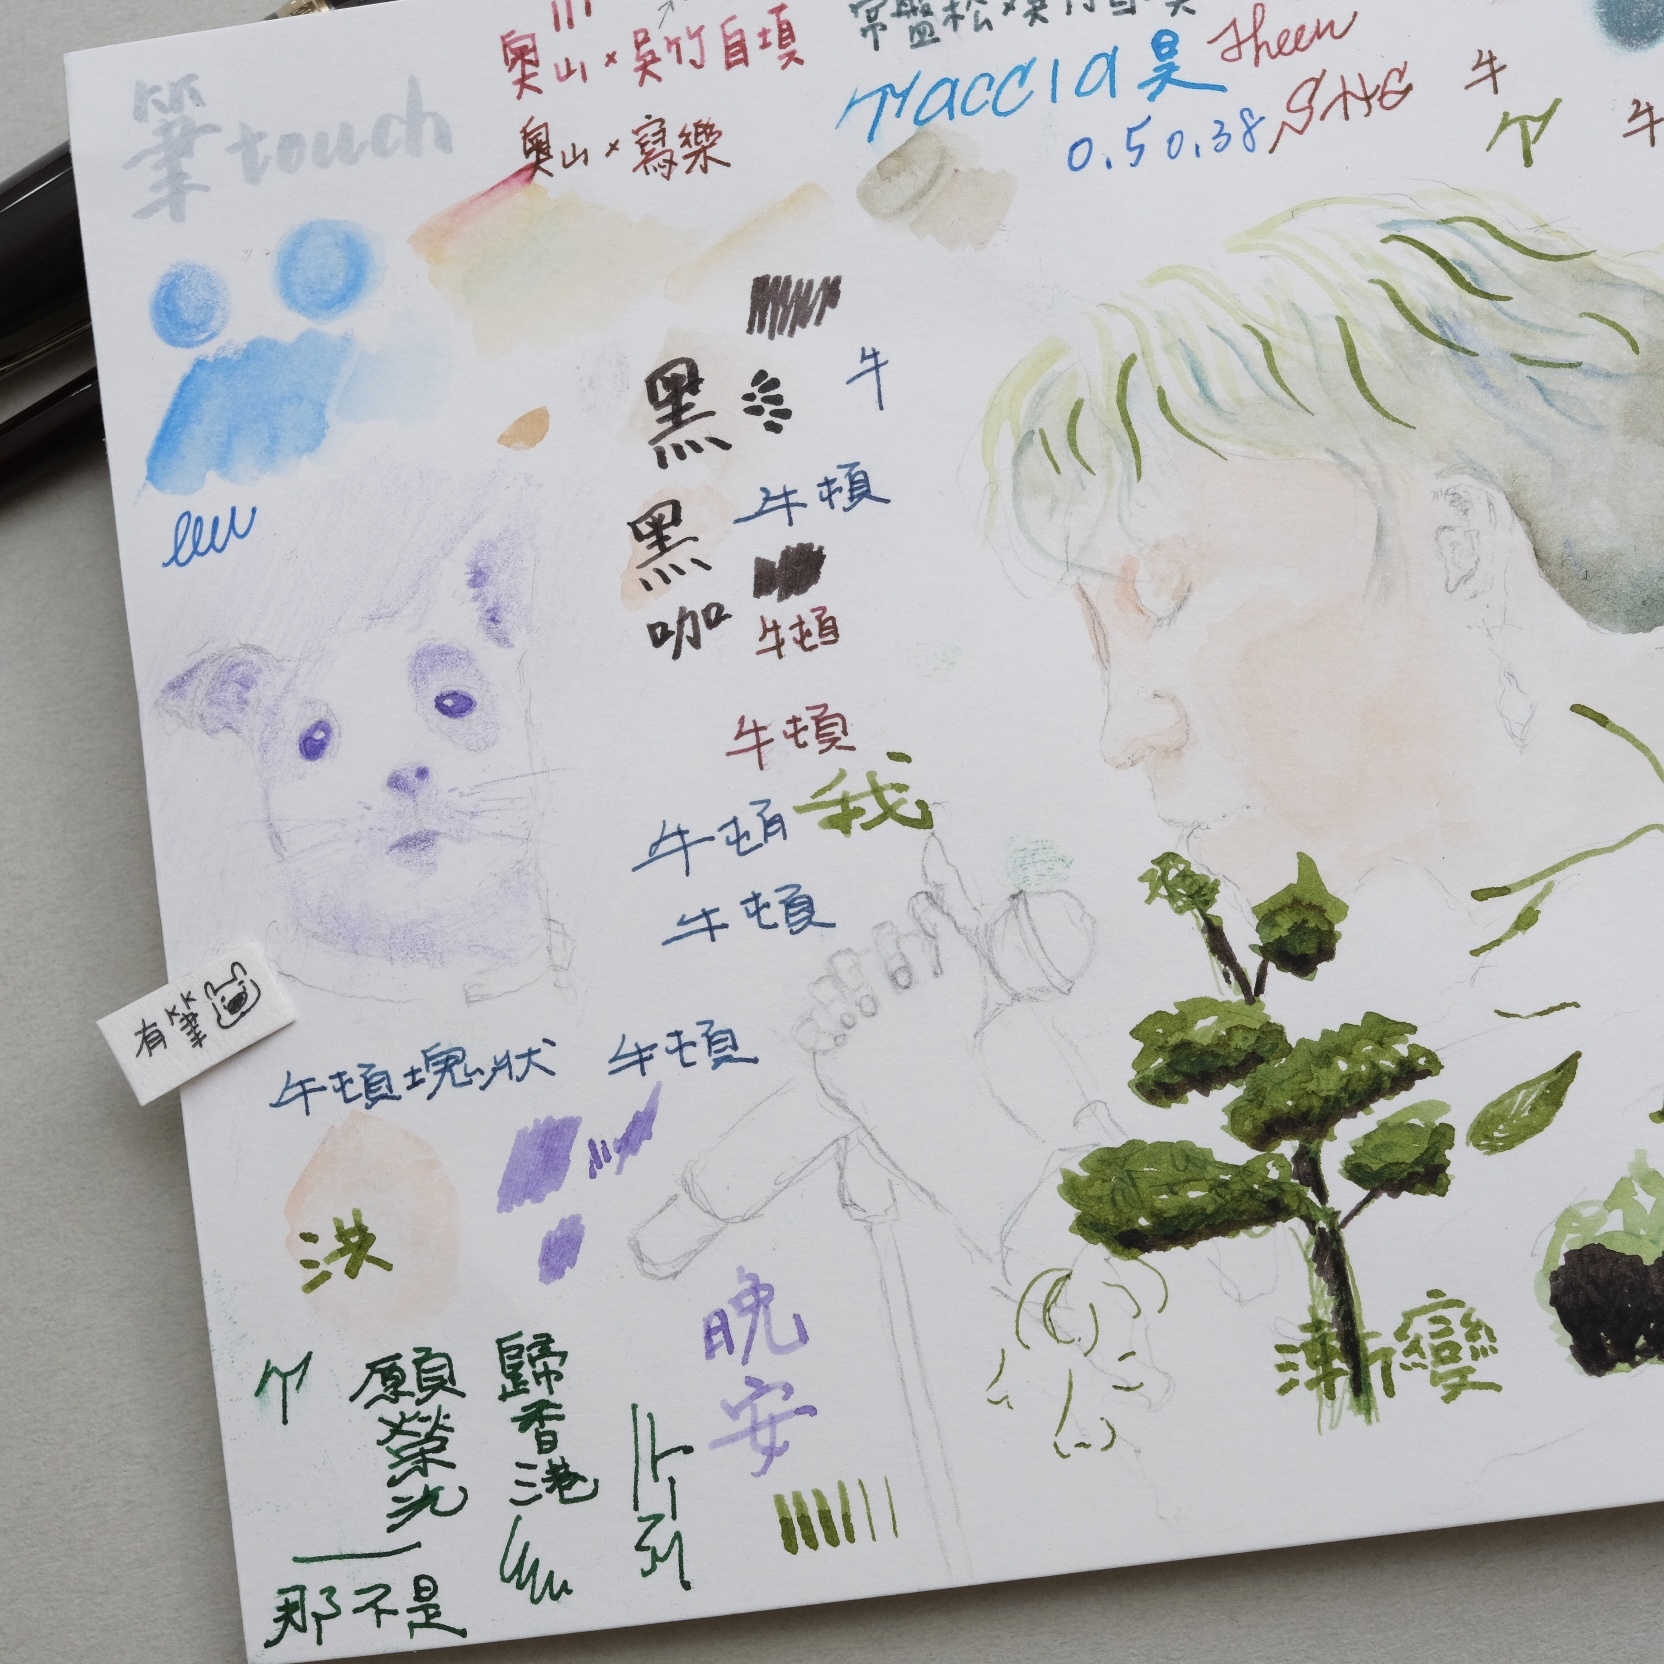 筆touch
奧山×吳竹自填
奧山×寫樂
常盤松×吳竹自填
Taccia 昊 sheen
0.5 0.38 SHE
牛
牛
黑
牛
黑
牛頓
咖
牛頓
牛頓
我
牛頓
牛頓
有筆
牛頓塊狀
牛頓
洪
晚安
漸變
願榮光
歸香港
那不是